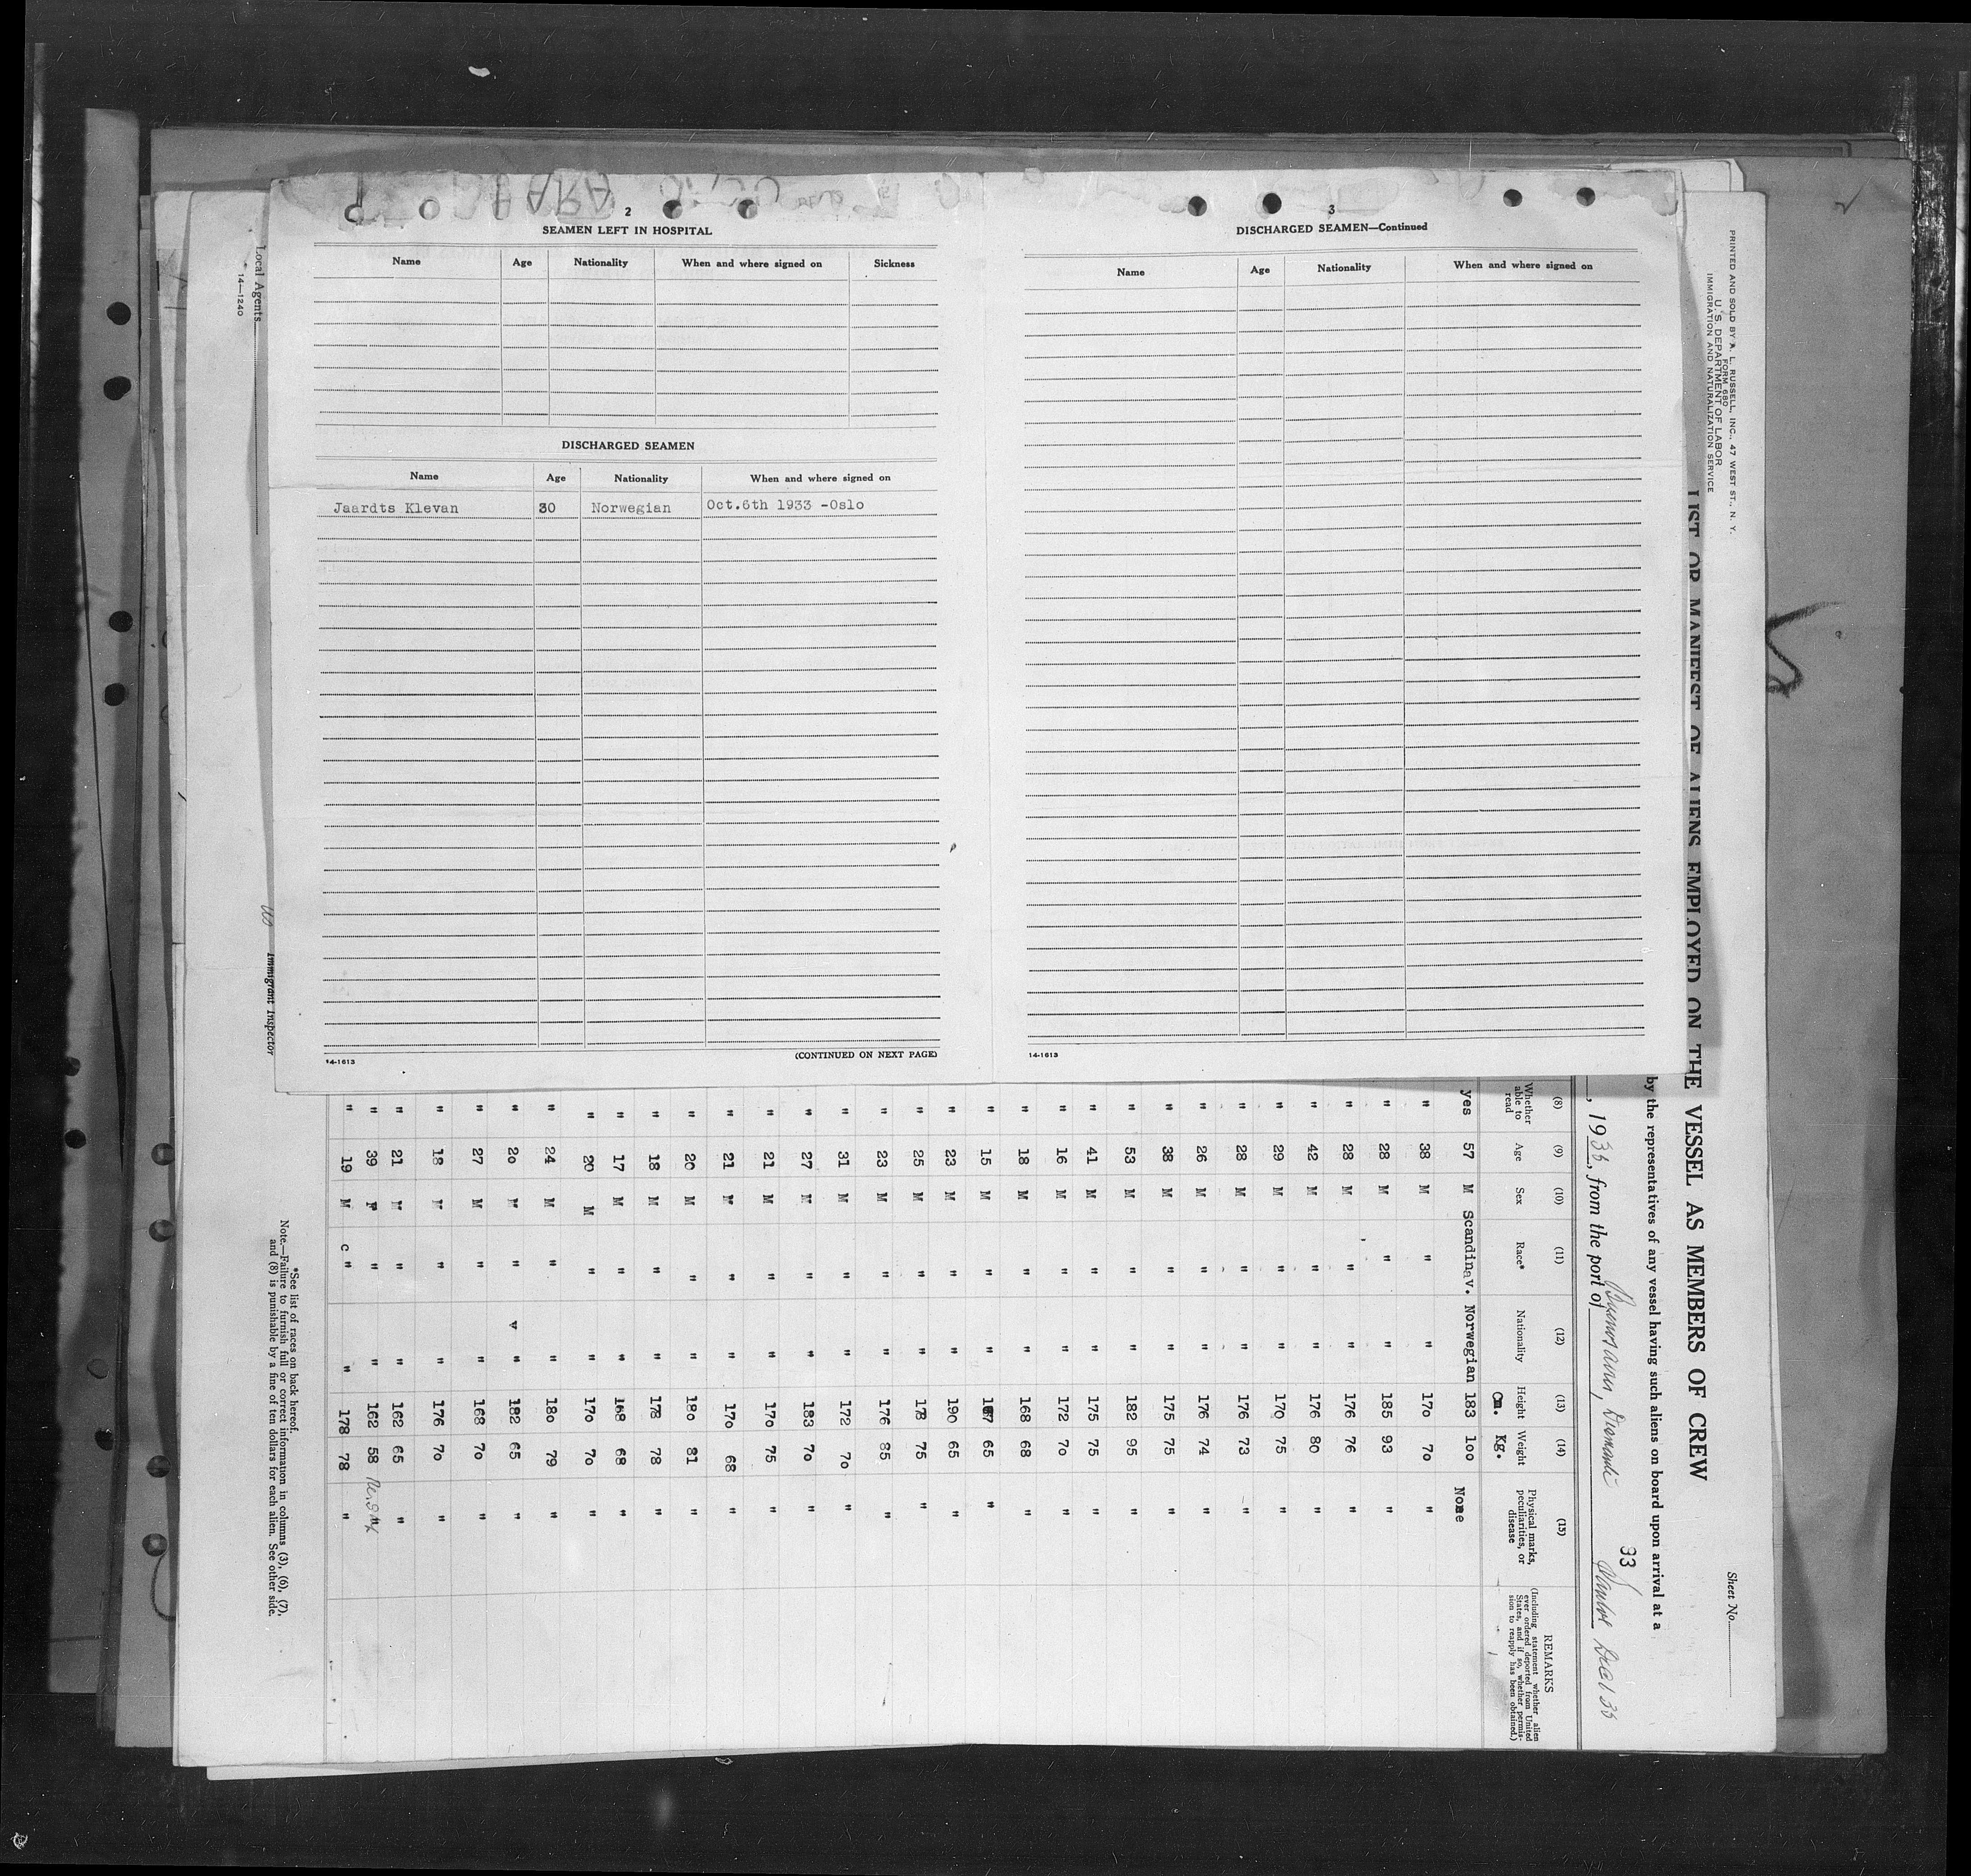 2
SEAMEN LEFT IN HOSPITAL
Name Age Nationality When and where signed on Sickness
DISCHARGED SEAMEN
Name Age Nationality When and where signed on
Jaardts Klevan 30 Norwegian Oct.6th 1933 -Oslo
14-1613 (CONTINUED ON NEXT PAGE)
3
DISCHARGED SEAMEN—Continued
Name Age Nationality When and where signed on
14-1613
PRINTED AND SOLD BY A. L. RUSSELL, INC., 47 WEST ST., N. Y.
FORM 680
U. S. DEPARTMENT OF LABOR
IMMIGRATION AND NATURALIZATION SERVICE
Sheet No.
LIST OR MANIFEST OF ALIENS EMPLOYED ON THE VESSEL AS MEMBERS OF CREW
by the representatives of any vessel having such aliens on board upon arrival at a
93
, 1933, from the port of
(8) (9) (10) (11) (12) (13) (14) (15)
Whether able to read Age Sex Race* Nationality Height Weight Physical marks, peculiarities, or disease
REMARKS
(Including statement whether alien ever ordered deported from United States, and if so, whether permission to reapply has been obtained.)
Cm. Kg.
yes 57 M Scandinav. Norwegian 183 100 None
" 38 M " " 170 70 "
" 28 M " " 185 93 "
" 28 M " " 176 76 "
" 42 M " " 176 80 "
" 29 M " " 170 75 "
" 28 M " " 176 73 "
" 26 M " " 176 74 "
" 38 M " " 175 75 "
" 53 M " " 182 95 "
" 41 M " " 175 75 "
" 16 M " " 172 70 "
" 18 M " " 168 68 "
" 15 M " " 167 65 "
" 23 M " " 190 65 "
" 25 M " " 178 75 "
" 23 M " " 176 85 "
" 31 M " " 172 70 "
" 27 M " " 183 70 "
" 21 M " " 170 75 "
" 21 M " " 170 68 "
" 20 M " " 180 81 "
" 18 M " " 178 78 "
" 17 M " " 168 68 "
" 20 M " " 170 70 "
" 24 M " " 180 79 "
" 20 M " " 182 65 "
" 27 M " " 168 70 "
" 18 M " " 176 70 "
" 21 M " " 162 65 "
" 39 F " " 162 58 "
" 19 M " " 178 78 "
*See list of races on back hereof.
Note.—Failure to furnish full or correct information in columns (3), (6), (7),
and (8) is punishable by a fine of ten dollars for each alien. See other side.
Local Agents
14—1240
Immigrant Inspector